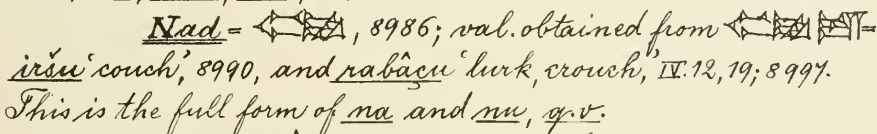 Nad = 𒈿, 8986; val. obtained from 𒈿 𒁕 =
iršu ‘couch’, 8990, and rabâçu ‘lurk, crouch,’ IV. 12, 19; 8997.
This is the full form of na and nu, q.v.